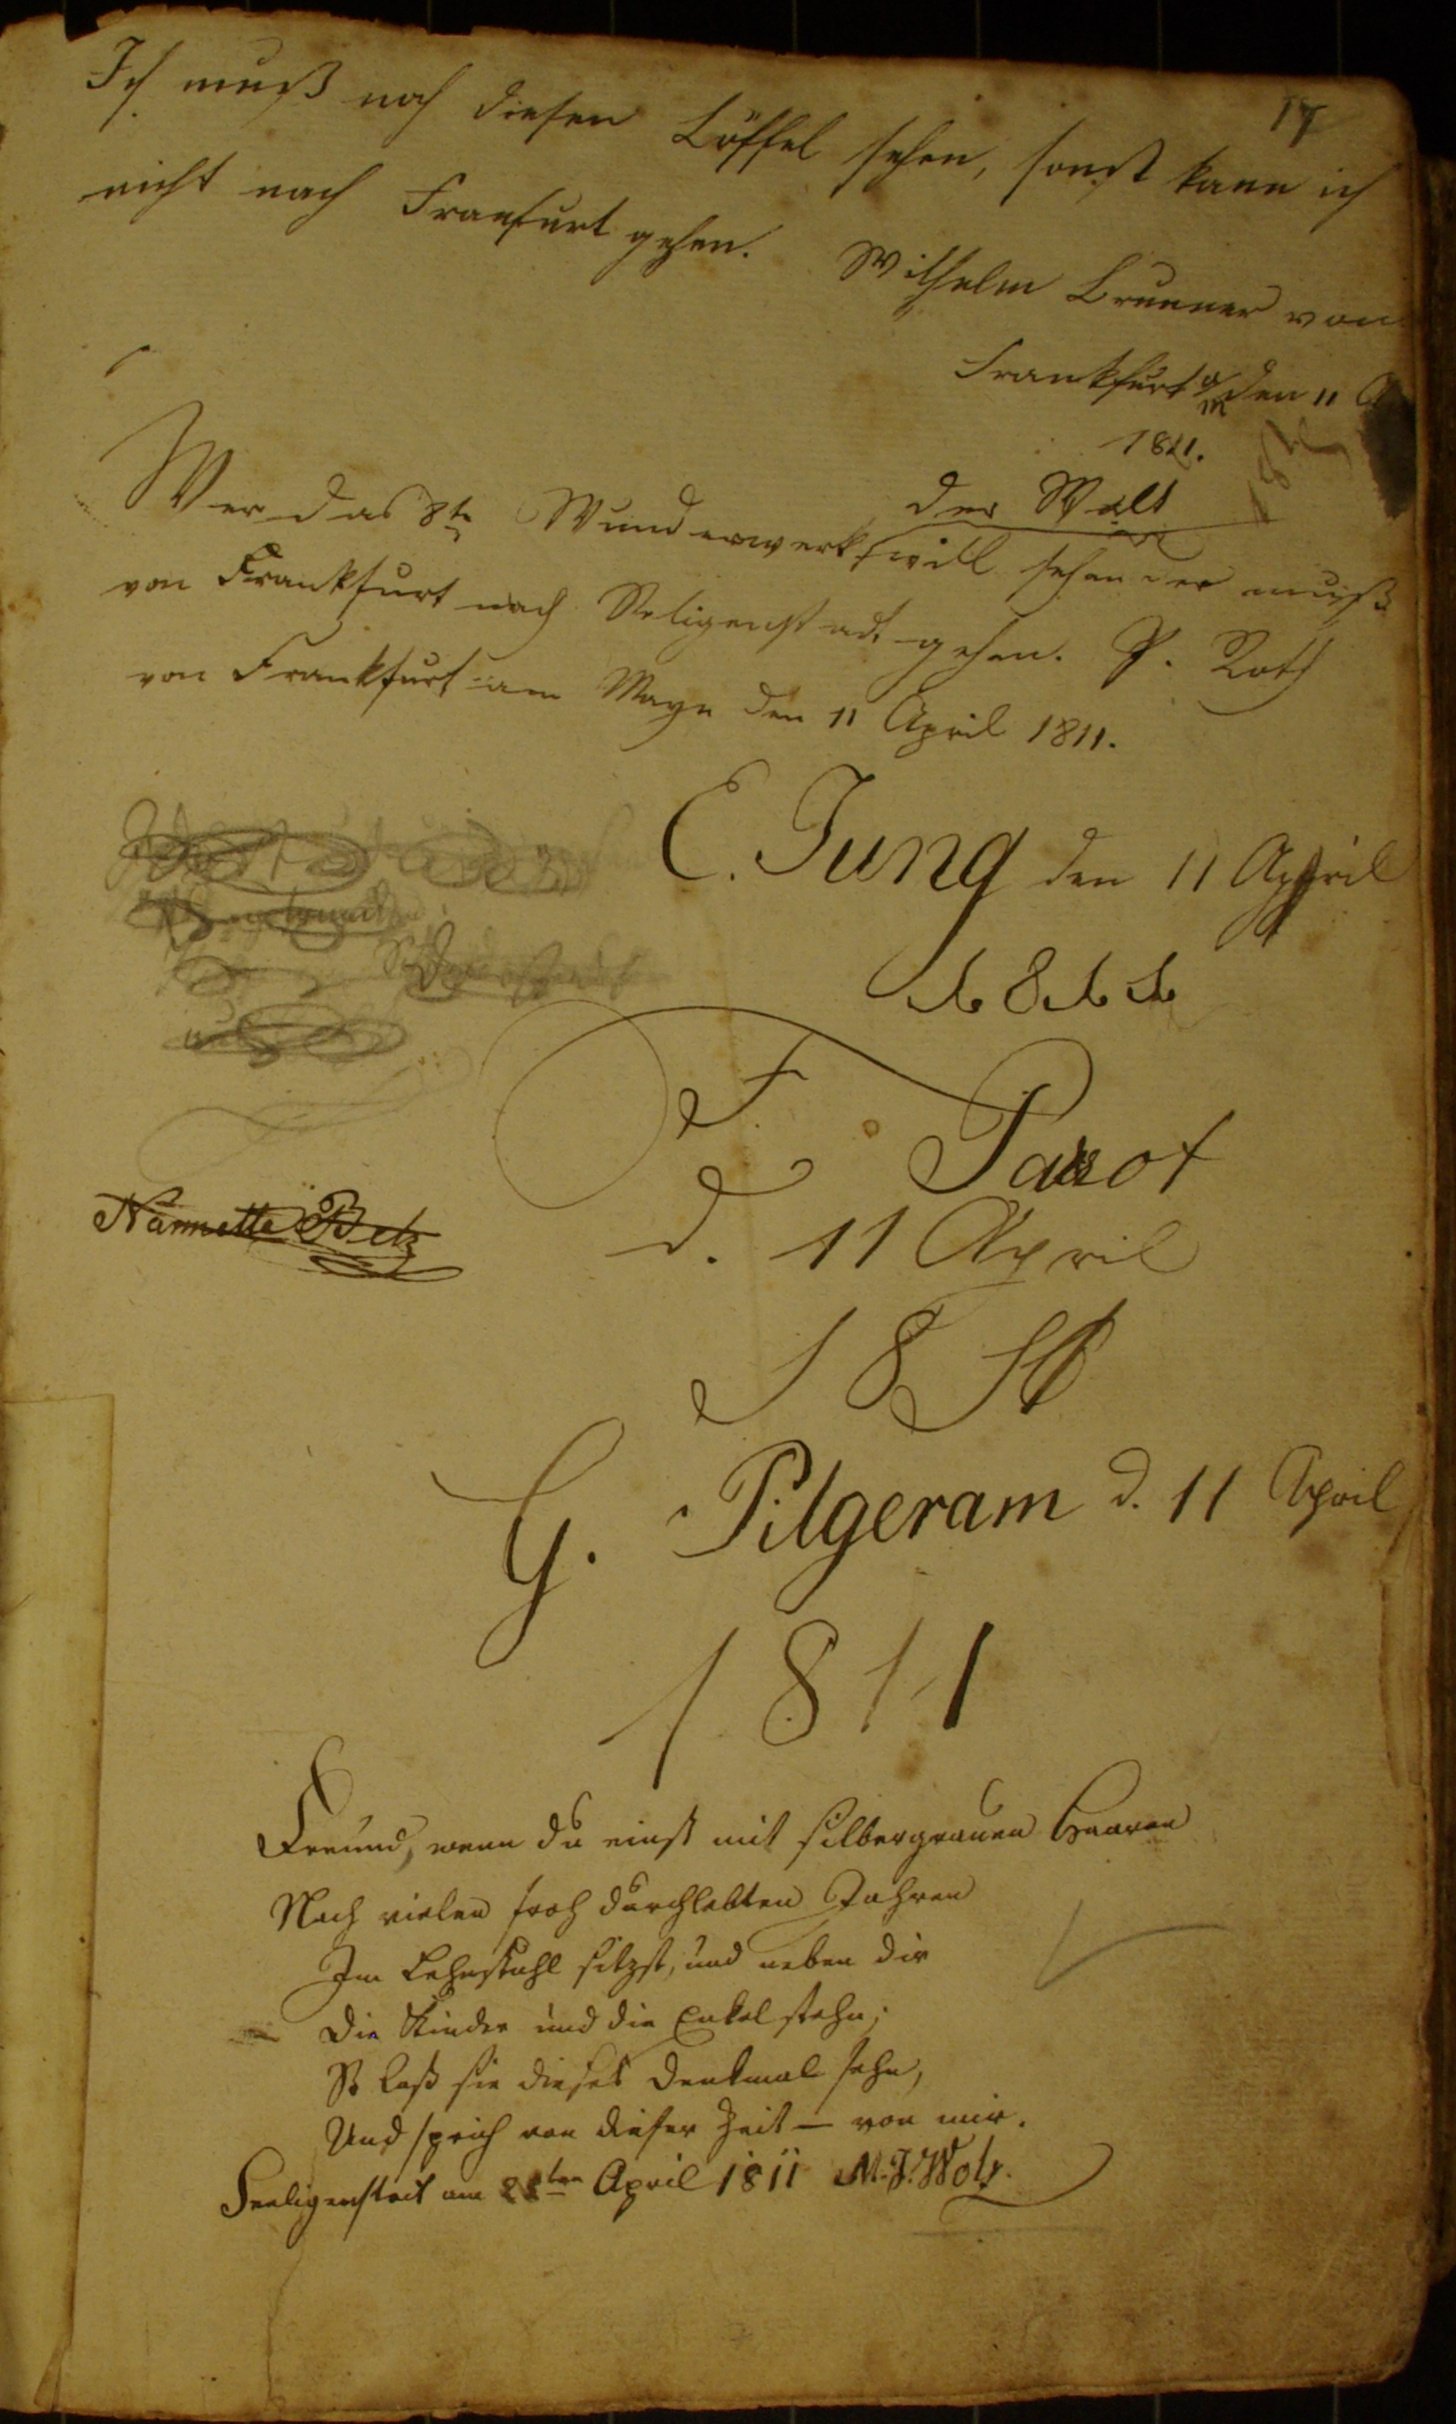 17
Ich muß noch diesen Löffel sehen, sonst kann ich
nicht nach Franfurt gehen. Wilhelm Brunner von
Frankfurt a/m den 11 A
1811.
der Welt
Wer das 8te Wunderwerk will sehen der muß
von Frankfurt nach Seligenstadt gehen. P. Roth
von Frankfurt am Mayn den 11 April 1811.
E. Jung den 11 April
1811
F. Parot
d. 11 April
1811
Nannette Betz
G. Pilgeram d. 11 April
1811
Freund, wenn du einst mit silbergrauen Haaren
Nach vielen froh durchlebten Jahren
Im Lehnstuhl sitzst, und neben dir
Die Kinder und die Enkel stehn;
So laß sie dieses Denkmal sehn,
Und sprich von dieser Zeit – von mir.
Seeligenstadt am 28ten April 1811 M. J. Wolz.